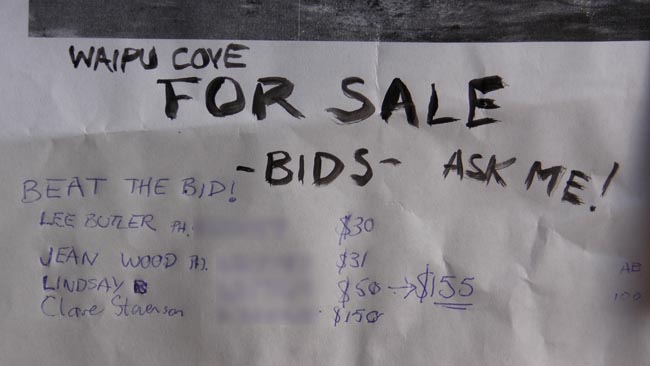 WAIPU COVE
FOR SALE
-BIDS- ASK ME!
BEAT THE BID!
LEE BUTLER PH. $30
JEAN WOOD PH. $31
LINDSAY B $50 → $155
Clare $150